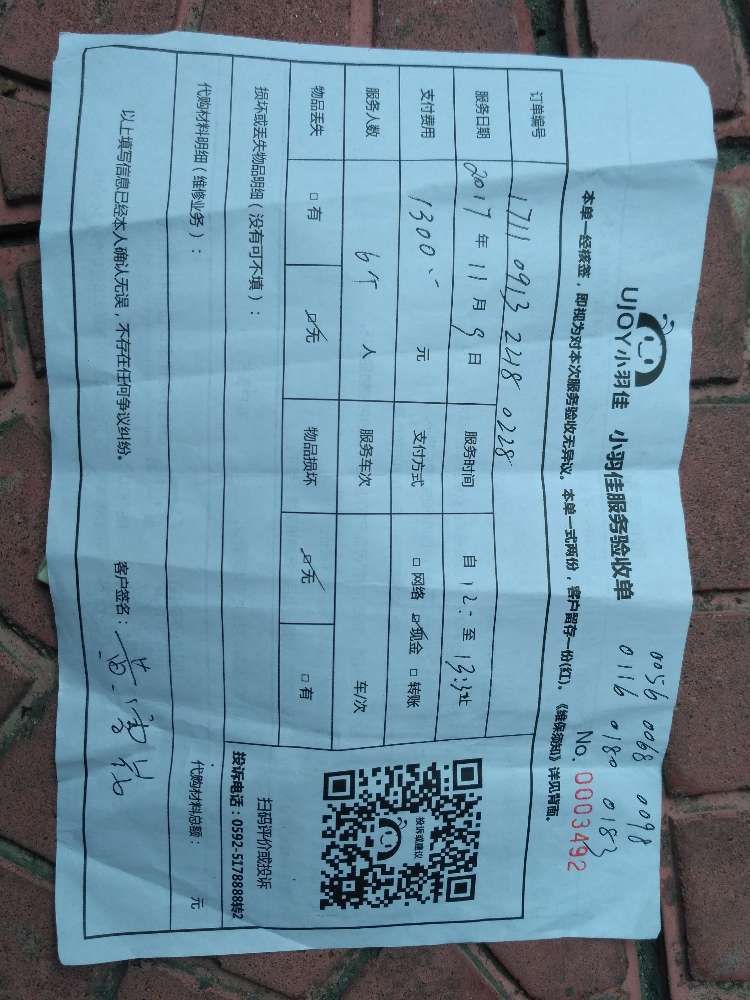 UJOY小羽佳 小羽佳服务验收单
0056 0068 0098
0116 0180 0183
No. 0003492
本单一经核签，即视为对本次服务验收无异议。本单一式两份，客户留存一份(红)。《维保须知》详见背面。
订单编号 1711 0913 2218 0228
服务日期 2017年11月9日 服务时间 自12:至13:32止
支付费用 1300 元 支付方式 □网络 ☑现金 □转账
服务人数 6个 人 服务车次 车/次
物品丢失 □有 ☑无 物品损坏 ☑无 □有
损坏或丢失物品明细（没有可不填）：
投诉或建议
扫码评价或投诉
投诉电话：0592-5178888转2
代购材料明细（维修业务）： 代购材料总额： 元
以上填写信息已经本人确认无误，不存在任何争议纠纷。 客户签名：